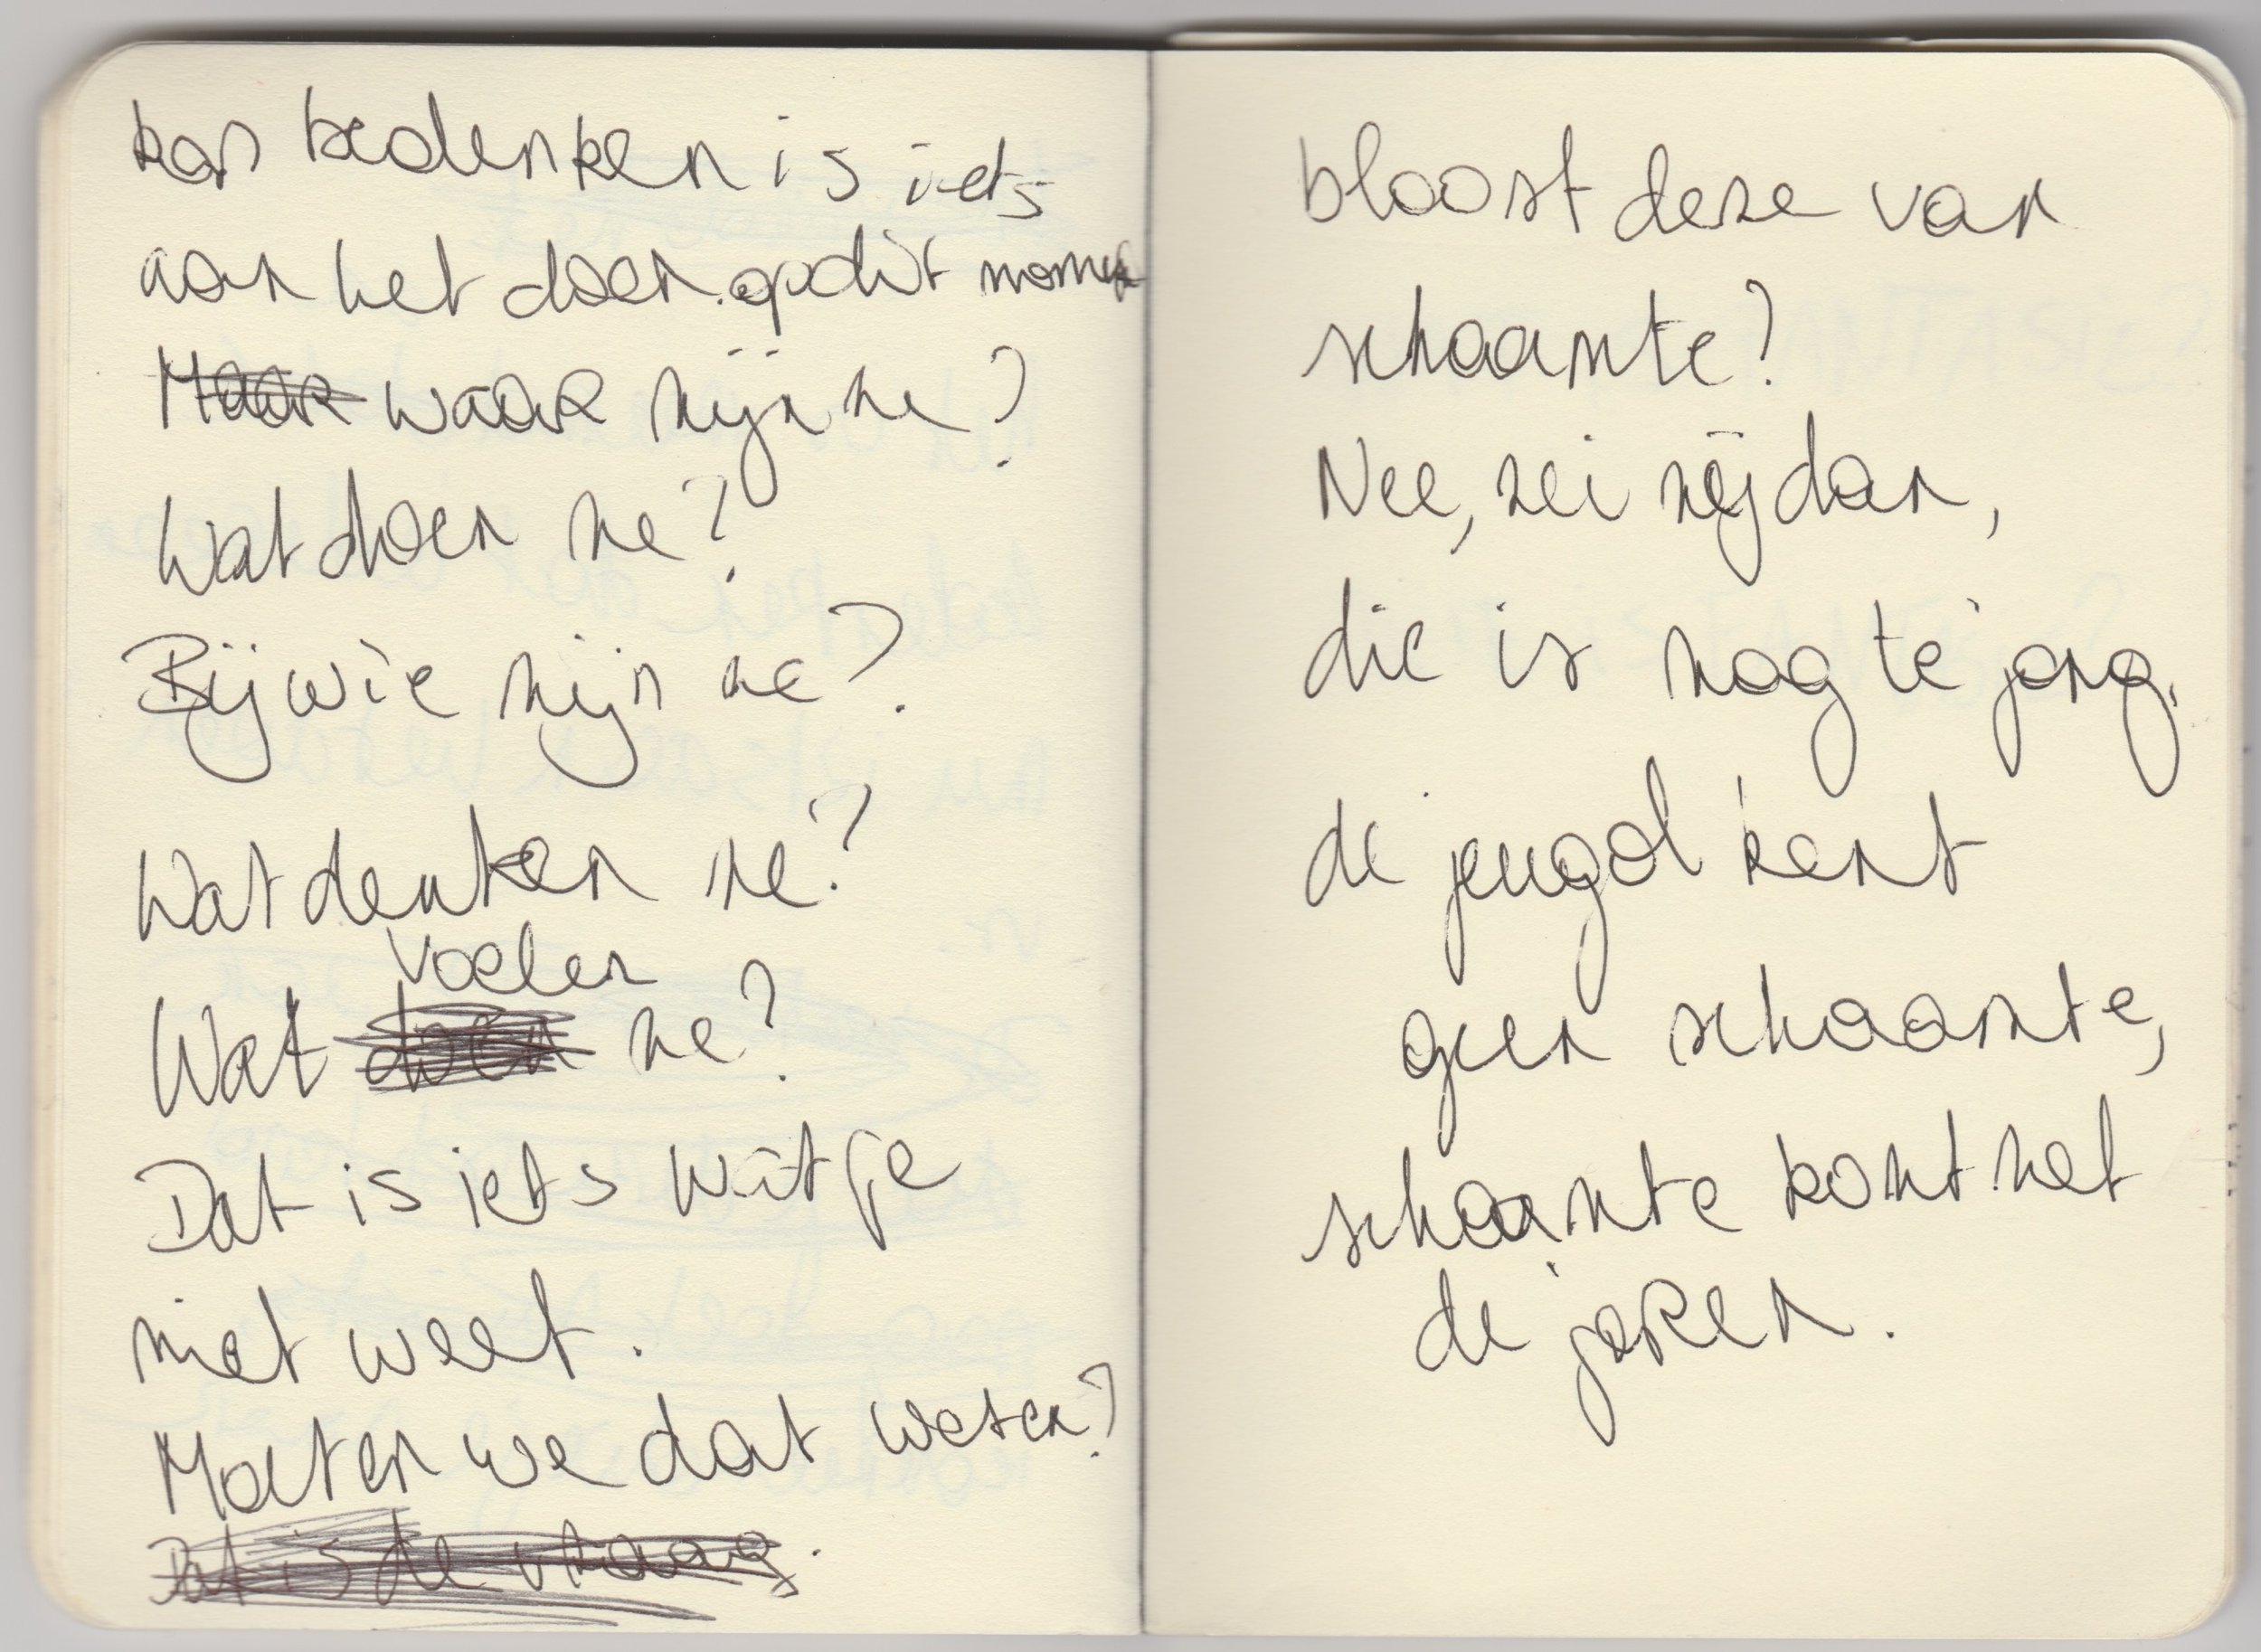 kan bedenken is iets
aan het doen op dit momen
Maar waar zijn ze?
Wat doen ze?
Bij wie zijn ze?
Wat denken ze?
voelen
Wat doen ze?
Dat is iets wat je
niet weet.
Moeten we dat weten?
Dat is de vraag.
bloost deze van
schaamte?
Nee, zei zij dan,
die is nog te jong,
de jeugd kent
geen schaamte,
schaamte komt met
de jaren.